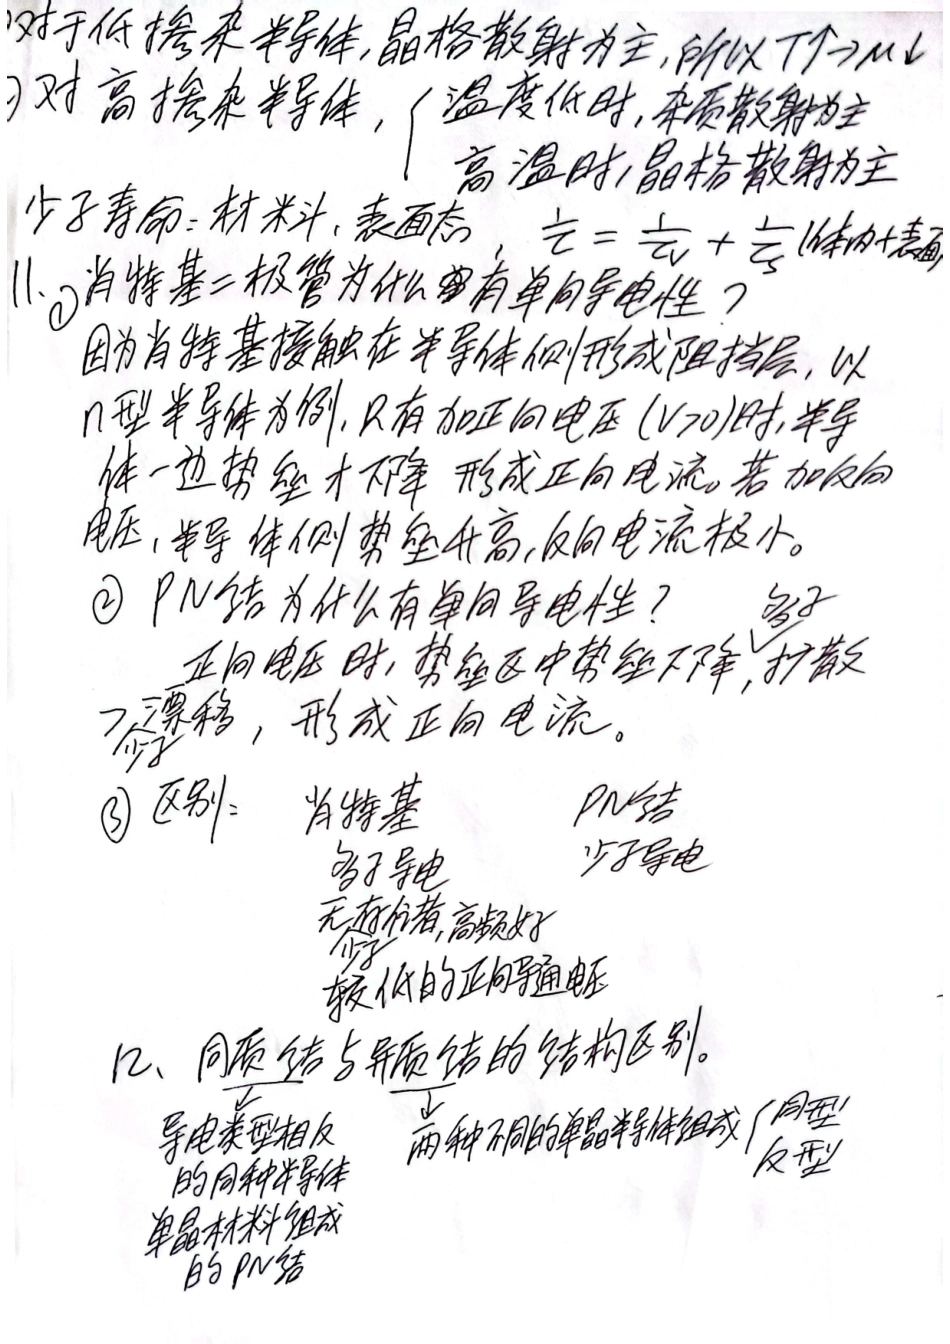 对于低掺杂半导体,晶格散射为主,所以T↑→μ↓
对高掺杂半导体,{温度低时,杂质散射为主
高温时,晶格散射为主
少子寿命:材料、表面态, 1/τ = 1/τv + 1/τs (体内+表面
11、① 肖特基二极管为什么有单向导电性?
因为肖特基接触在半导体侧形成阻挡层,以
n型半导体为例,只有加正向电压(V>0)时,半导
体一边势垒才下降 形成正向电流。若加反向
电压,半导体侧势垒升高,反向电流极小。
② PN结为什么有单向导电性?
正向电压时,势垒区中势垒下降,多子扩散
>少子漂移,形成正向电流。
③ 区别: 肖特基 PN结
多子导电 少子导电
无少子存储,高频好
较低的正向导通电压
12、同质结与异质结的结构区别。
↓ ↓
导电类型相反 两种不同的单晶半导体组成{同型
的同种半导体 反型
单晶材料组成
的PN结